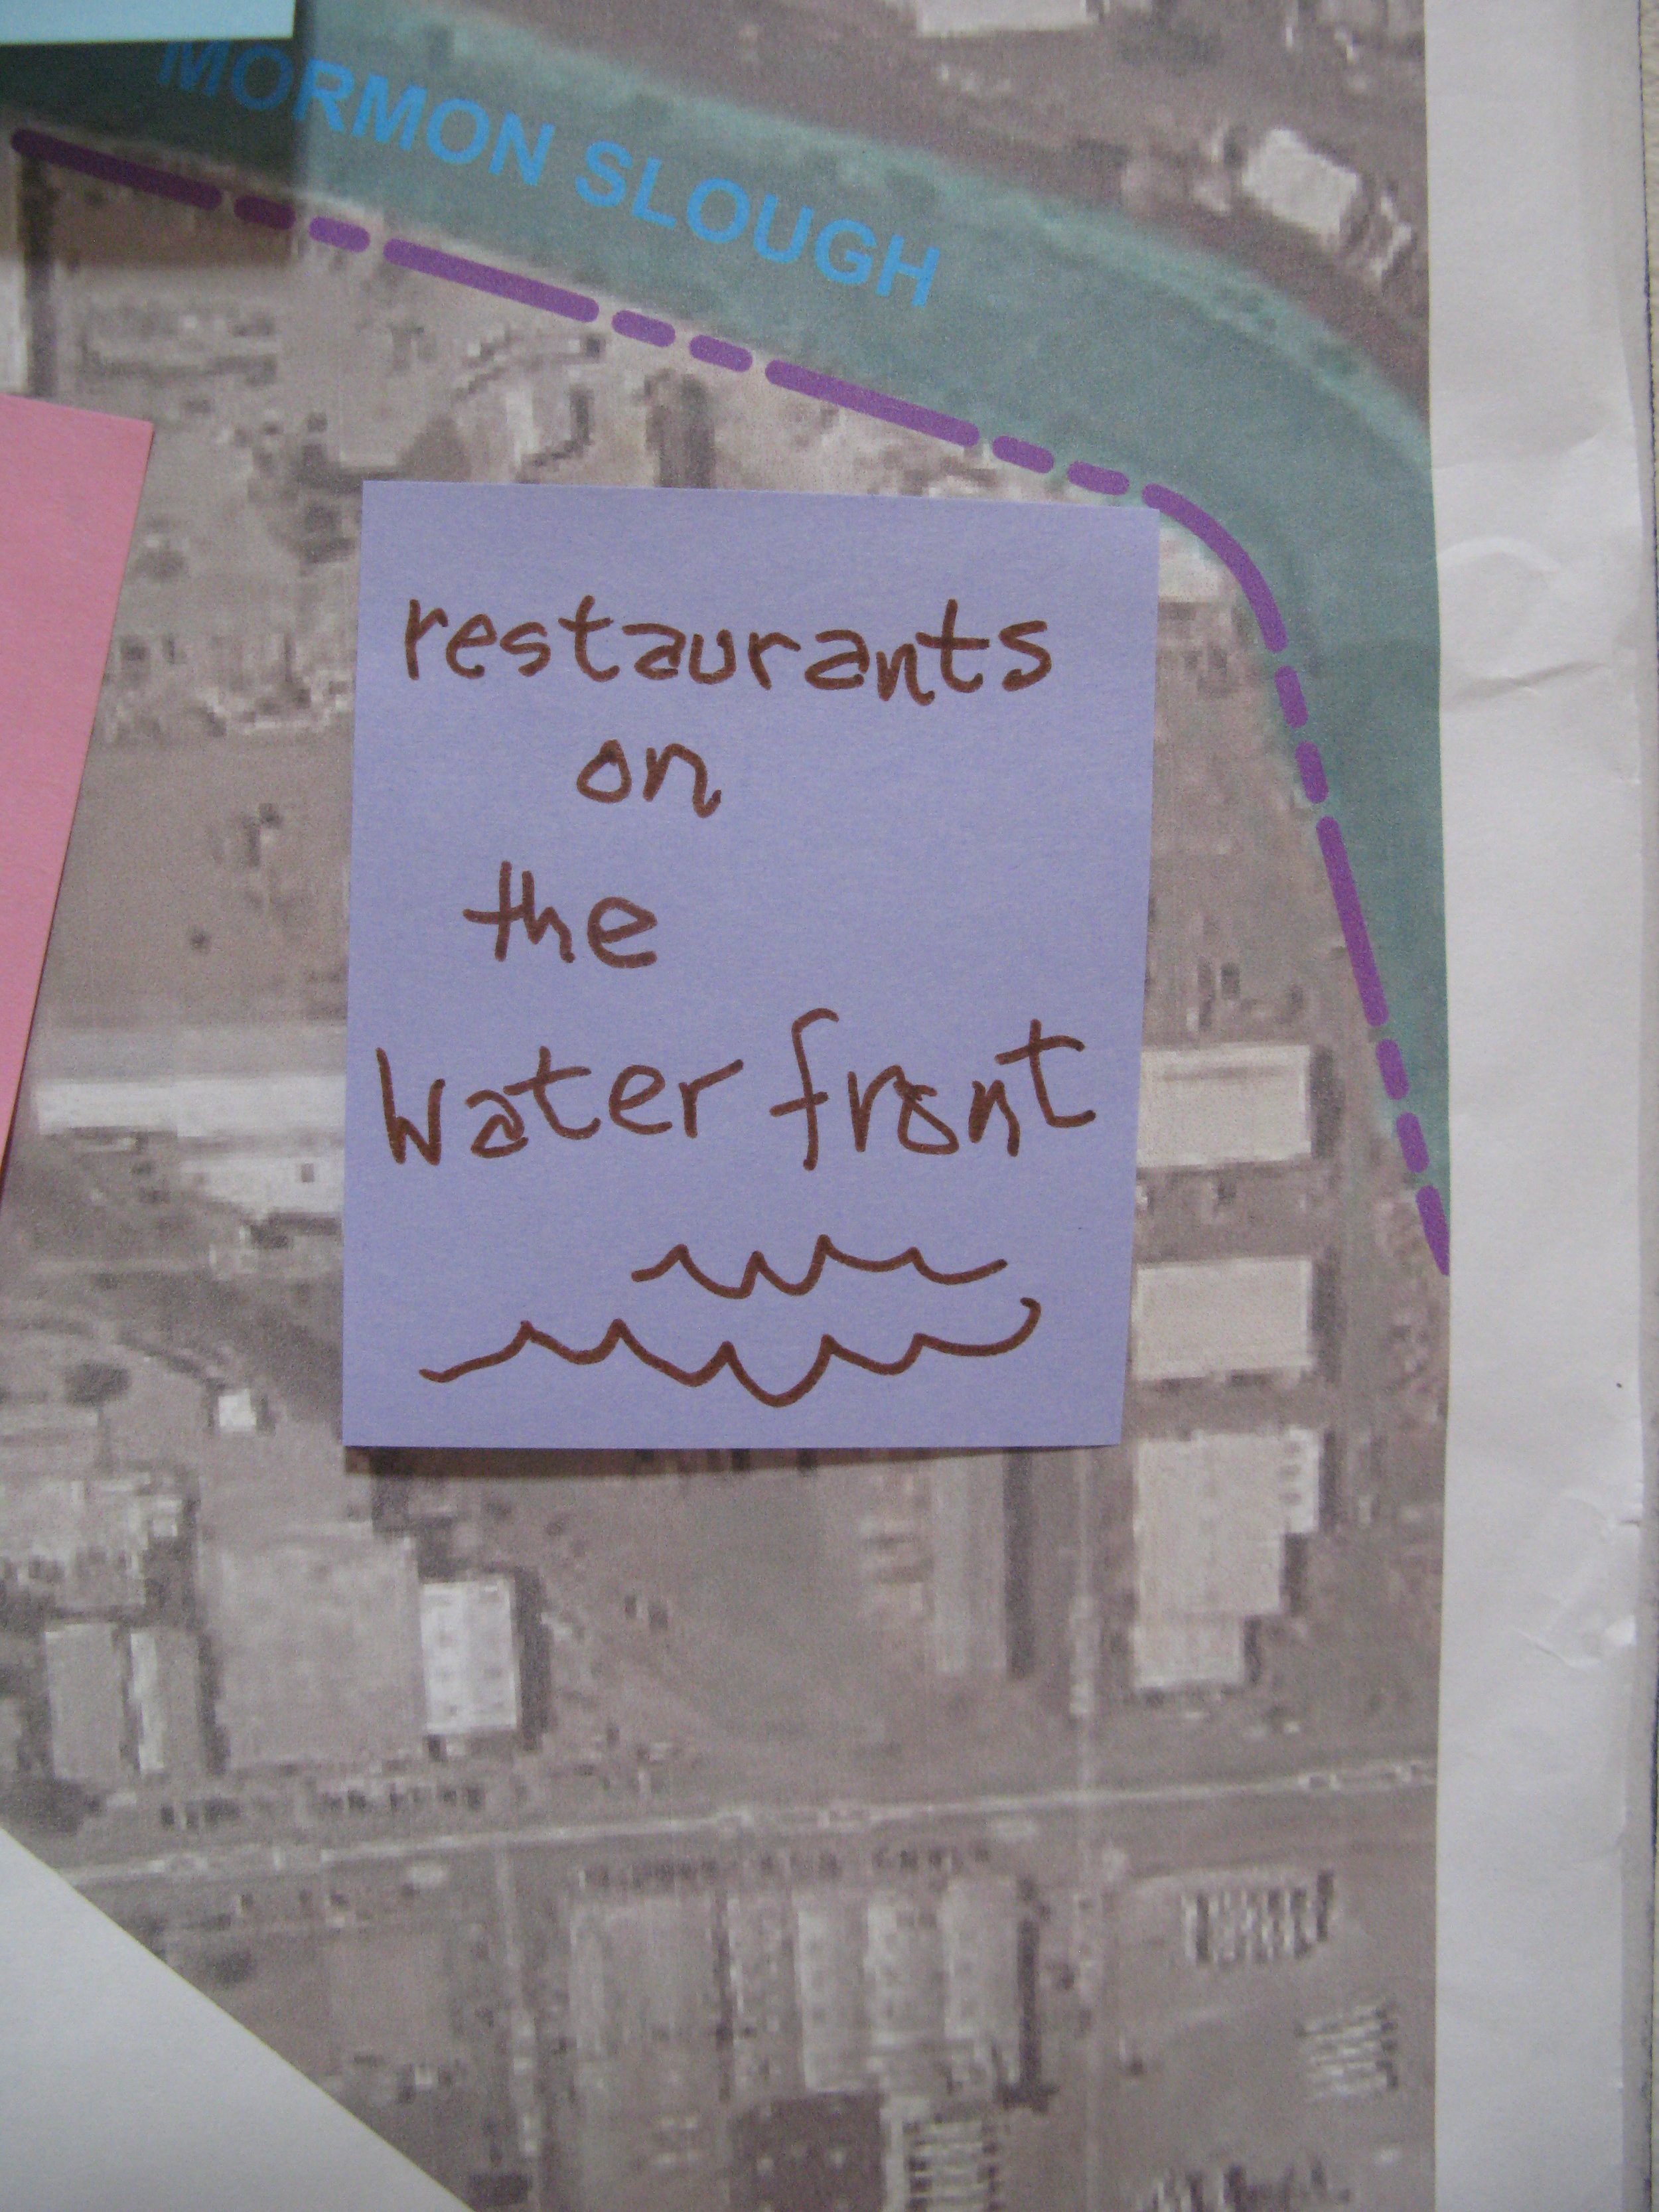 MORMON SLOUGH
restaurants
on
the
Water front